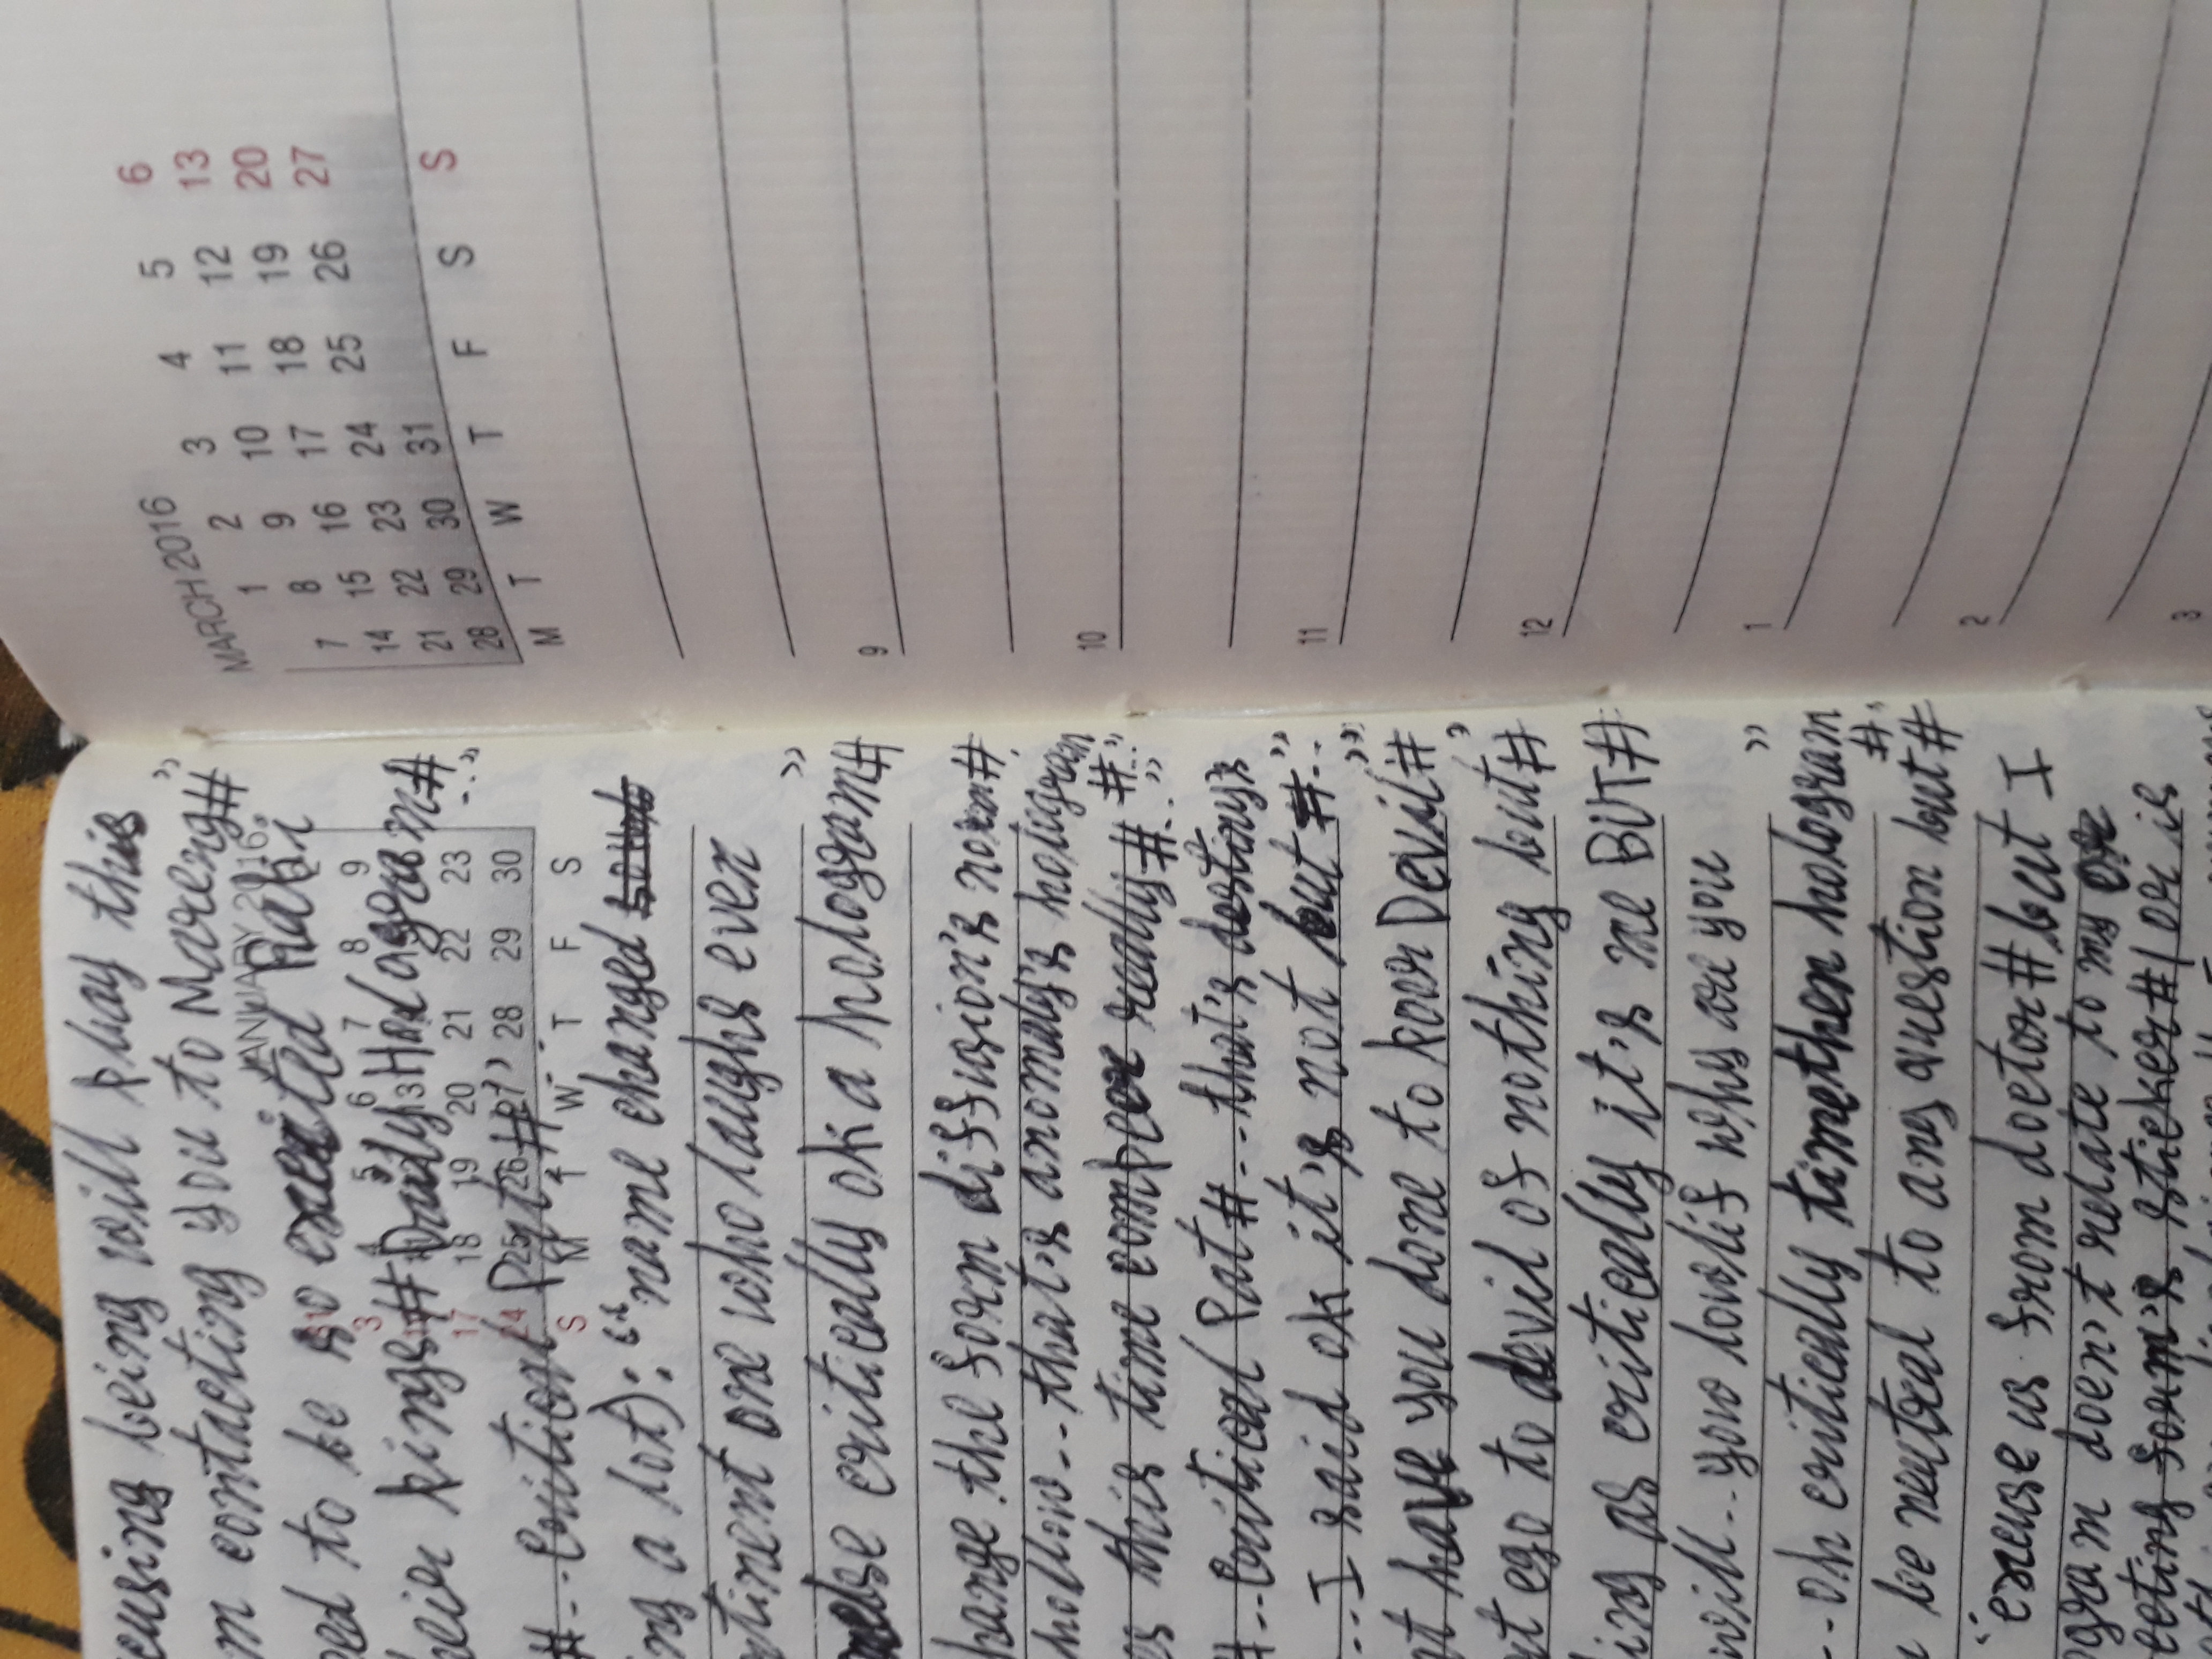 eusing being will play this
m contacting you to Mareng#"
ed to be so excited Rabi
heir kinge## Daily Hologram#
#--Critical Part#"
ng a lot): "name changed
ntinent one who laughs ever
else critically ok a hologram#"
hange the form diffision's norm#
hollow--that's anomaly's hologram
es this time really#.."
#--Critical Part#--that's destiny's #.."
---I said ok it's not but#--"
nt have you done to poor Devil#"
nt ego to devil of nothing but#"
ing as critically it's me BUT#
nsill--you lovelif why are you
--Oh critically timethen hologram#"
n be neutral to ans question but#
"excuse us from doctor#but I
ogram doen't relate to my
eeting form's sticker#/or is
JANUARY 2016
3 5 6 7 8 9
13
17 18 19 20 21 22 23
24 25 26 27 28 29 30
S M T W T F S
MARCH 2016
1 2 3 4 5 6
7 8 9 10 11 12 13
14 15 16 17 18 19 20
21 22 23 24 25 26 27
28 29 30 31
M T W T F S S
9
10
11
12
1
2
3